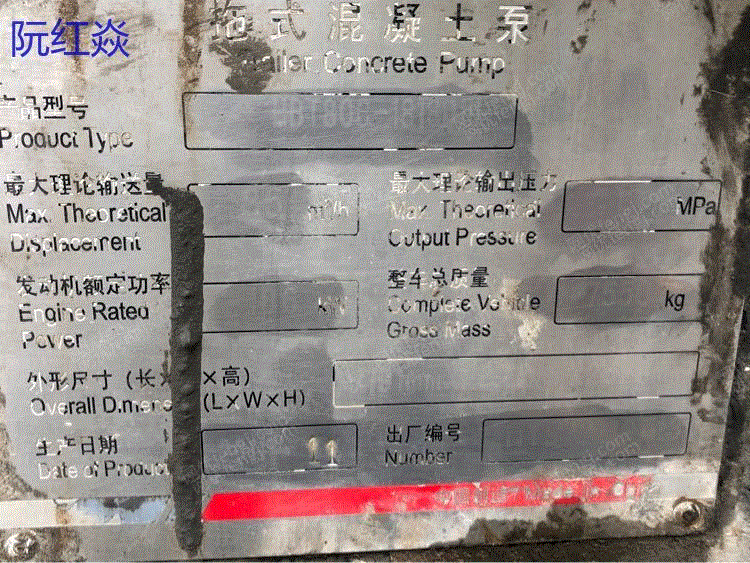 阮红焱
拖式混凝土泵
Trailer Concrete Pump
产品型号
Product Type
最大理论输送量
Max. Theoretical
Displacement
m³/h
最大理论输出压力
Max. Theoretical
Output Pressure
MPa
发动机额定功率
Engine Rated
Power
kW
整车总质量
Complete Vehicle
Gross Mass
kg
外形尺寸（长× ×高）
Overall Dimens (L×W×H)
生产日期
Date of Product
11
出厂编号
Number